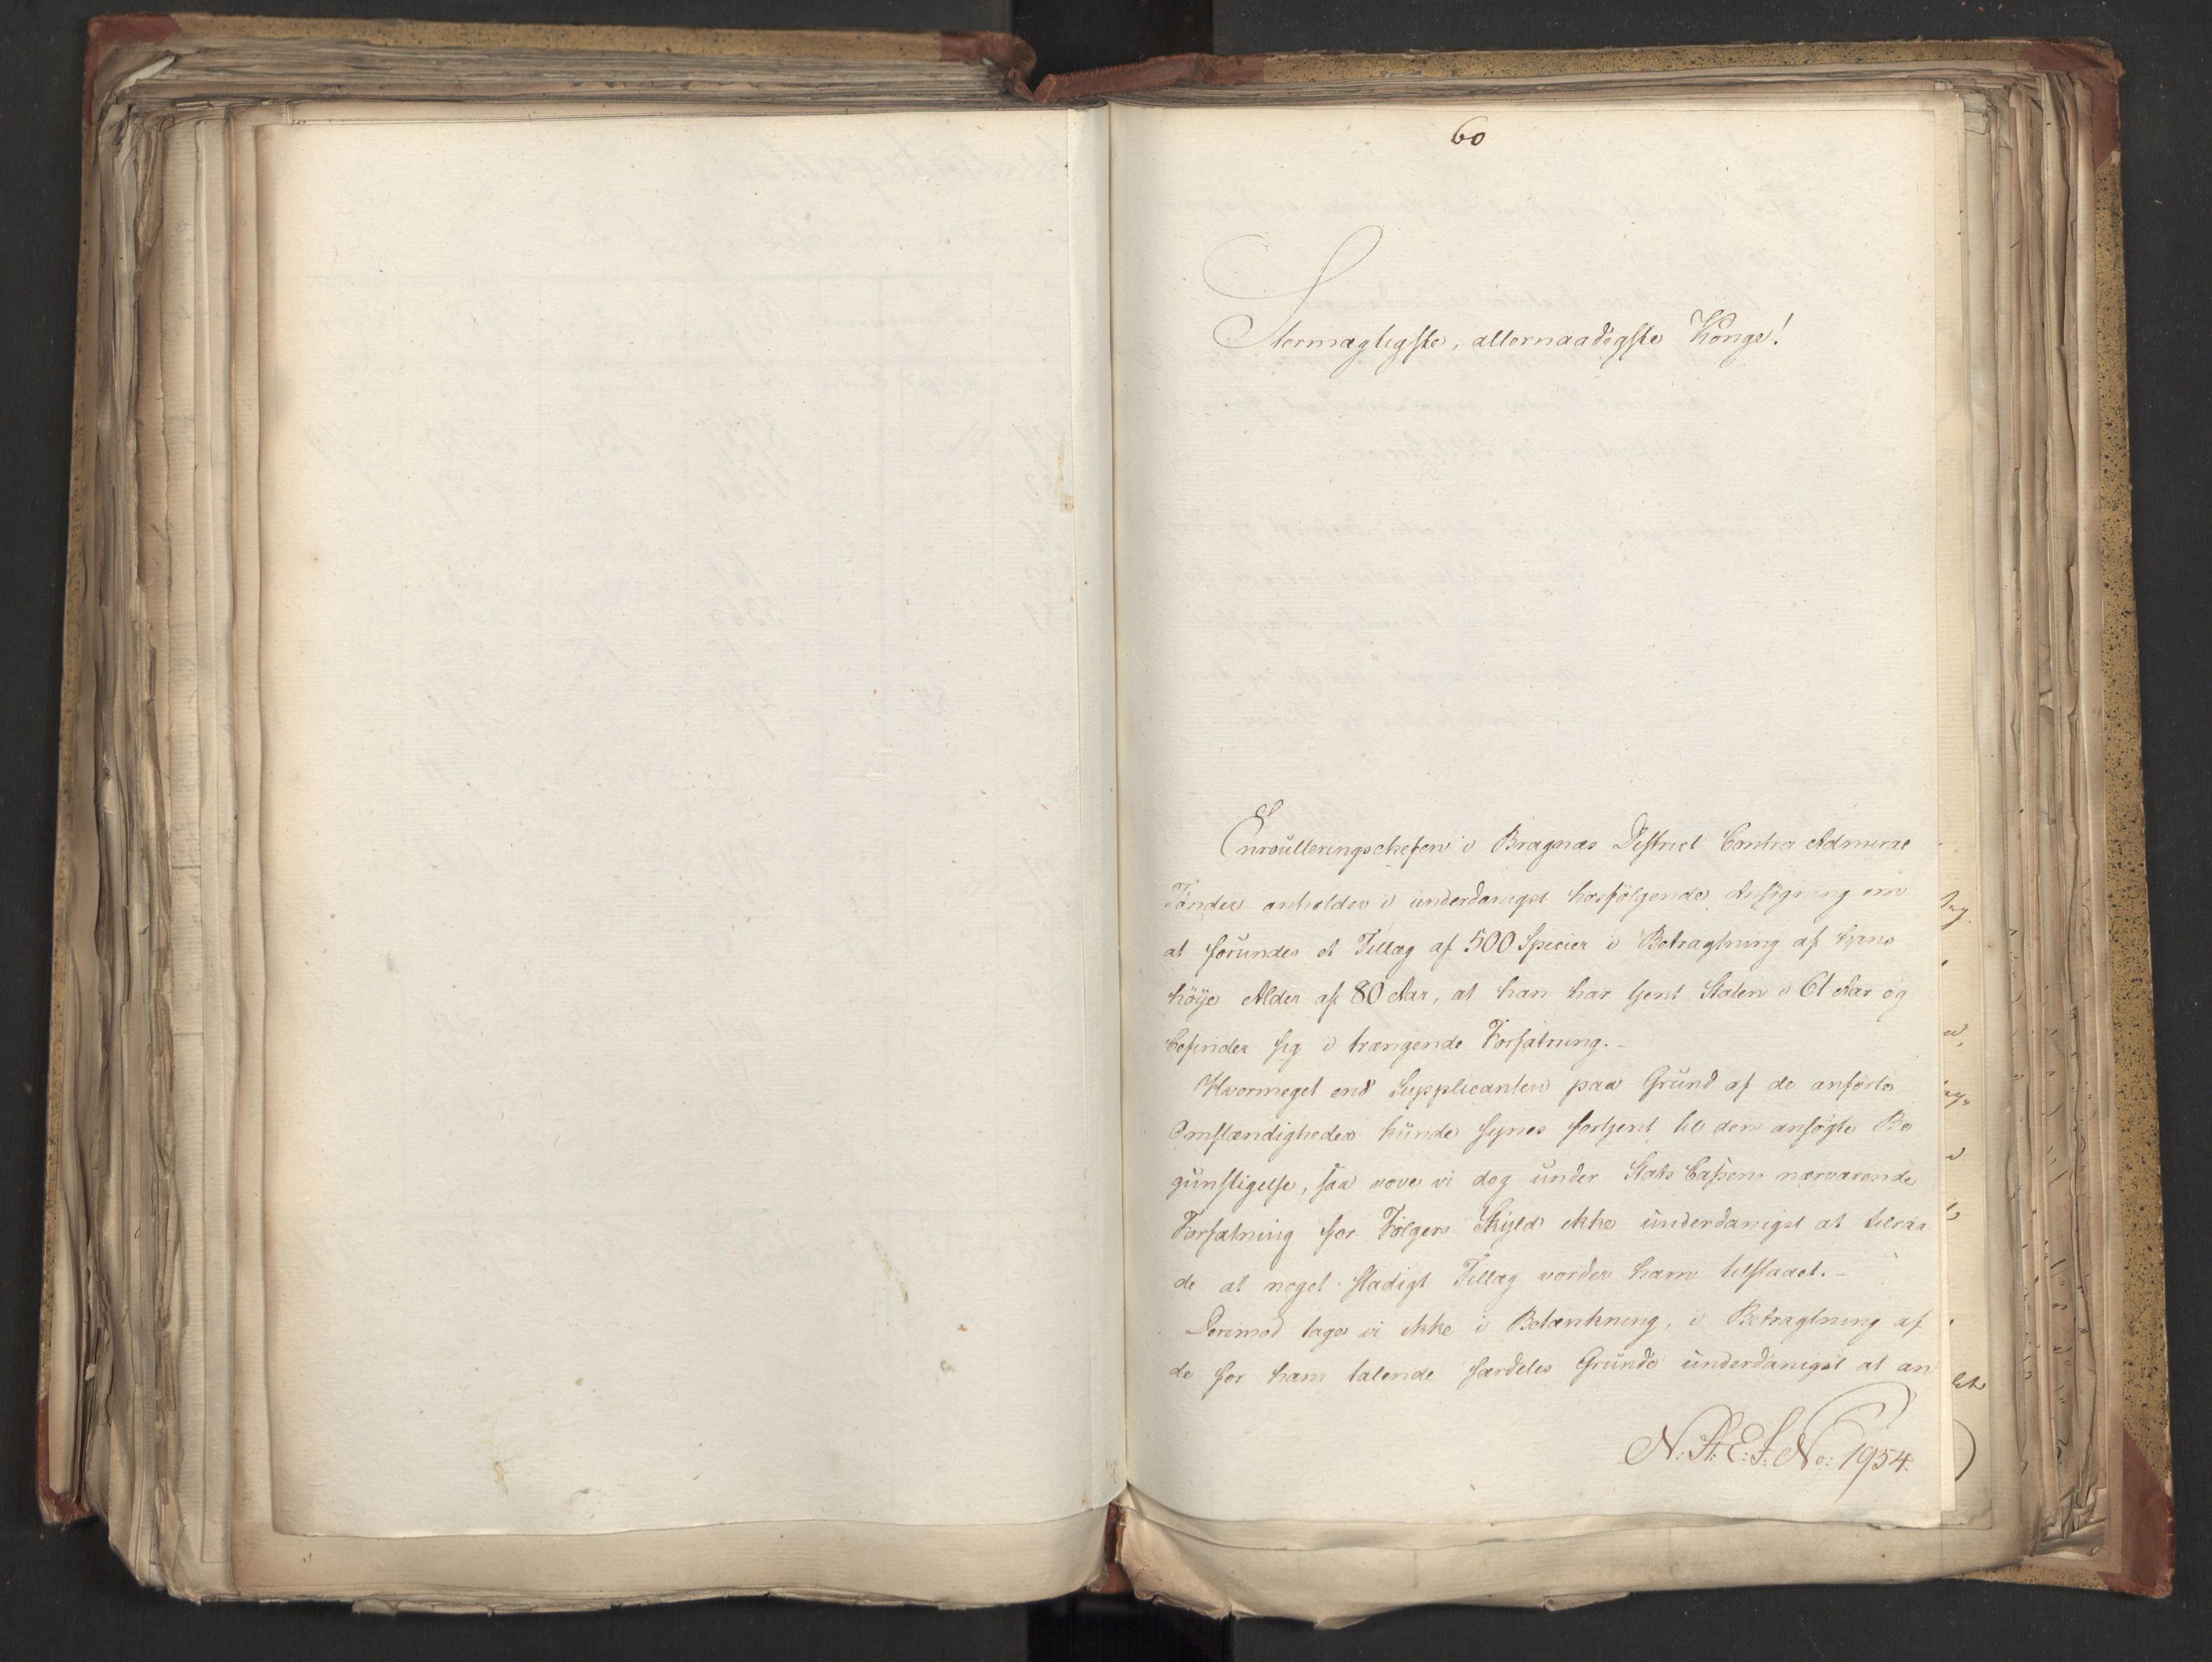 60
Stormægtigste, allernaadigste Konge!
Enroulleringschefen i Bragnæs District Contra Admiral
Tønder anholder i underdanigst hosfölgende Ansögning om
at forundes et Tillæg af 500 Specier i Betragtning af hans
höye Alder af 80 Aar, at han har tjent Staten i 61 Aar og
befinder sig i trængende Forfatning. –
Hvormeget end Supplicanten paa Grund af de anförte
Omstændigheder kunde synes fortjent til den ansögte Be
gunstigelse, saa vove vi dog under Stats Cassens nærværende
Forfatning for Fölgers Skyld ikke underdanigst at tilraa
de at noget stadigt Tillæg vorder ham tilstaaet. –
Derimod tage vi ikke i Betænkning, i Betragtning af
de for ham talende særdeles Grunde underdanigst at an
N: St: E: J: No: 1954.